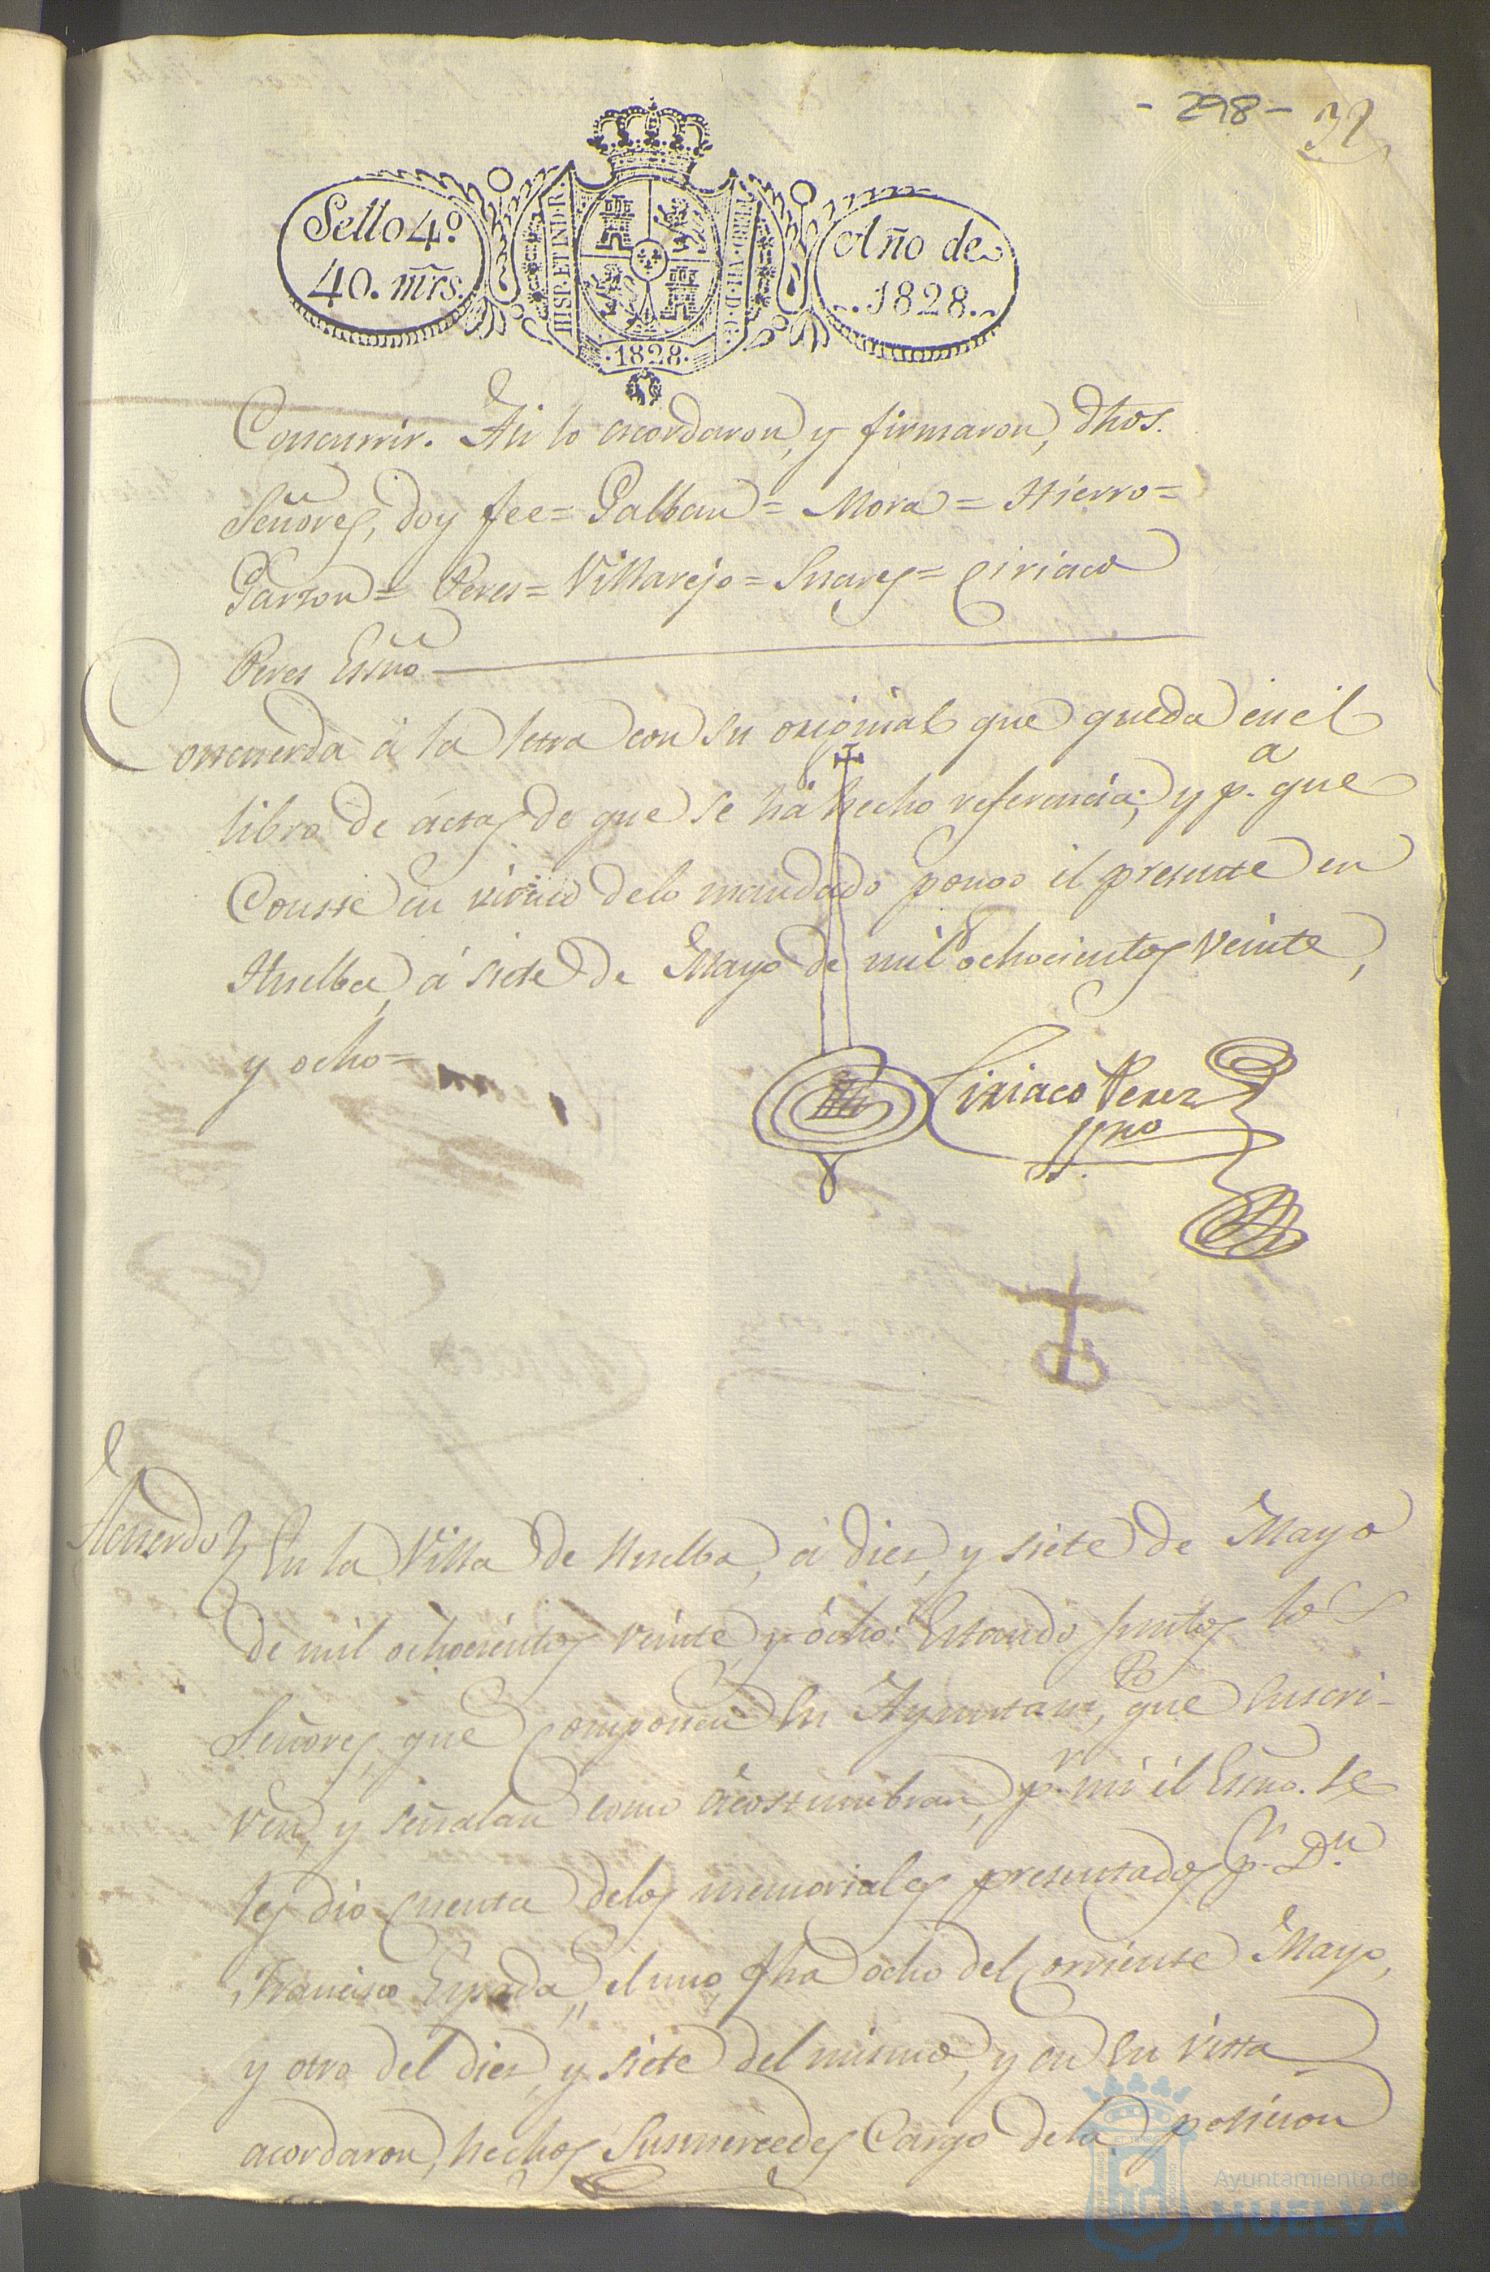 - 298 - 32
Sello 4º.
40. mrs.
HISP. ET IND. R.
FERD. VII. D. G.
.1828.
Año de
.1828.
Concurrir. Asi lo acordaron, y firmaron, Dhos.
Señores, doy fee = Galban = Mora = Hierro =
Garzon = Peres = Villarejo = Suares = Ciriaco
Peres Essno
Concuerda á la letra con su original que queda en el
libro de actas de que se há hecho referencia; y pª. que
Conste en virtud delo mandado pongo el presente en
Huelba, á siete de Mayo de mil ochocientos veinte,
y ocho =
Ciriaco Perez
Ssno
Acuerdo En la Villa de Huelba, á diez, y siete de Mayo
de mil ochocientos veinte, y ócho: Estando juntos los
Señores, que componen su Ayuntamto, que suscri-
ven, y señalan como acostumbran, pr. mi él Esno. se
les dio cuenta delos memoriales presentados pr. Dn.
Francisco Espada, el uno, fha ocho del corriente Mayo,
y otro del diez, y siete del mismo, y en su vista
acordaron, hechos Susmercedes Cargo dela peticion
Ayuntamiento de
HUELVA